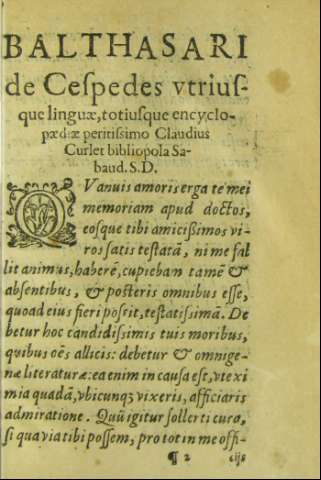 BALTHASARI
de Ceſpedes vtriuſ-
que linguæ, totiuſque encyclo-
pædiæ peritiſsimo Claudius
Curlet bibliopola Sa-
baud. S. D.
QVanuis amoris erga te mei
memoriam apud doctos,
eoſque tibi amiciſsimos vi-
ros ſatis teſtatā, ni me fal
lit animus, haberē, cupiebam tamē &
abſentibus, & poſteris omnibus eſſe,
quoad eius fieri poſsit, teſtatiſsimā. De
betur hoc candidiſsimis tuis moribus,
quibus oēs allicis: debetur & omnige-
næ literaturæ: ea enim in cauſa eſt, vt exi
mia quadā, vbicunqꝫ vixeris, afficiaris
admiratione. Quū igitur ſollerti cura,
ſi qua via tibi poſſem, pro tot in me offi-
¶ 2 cijs